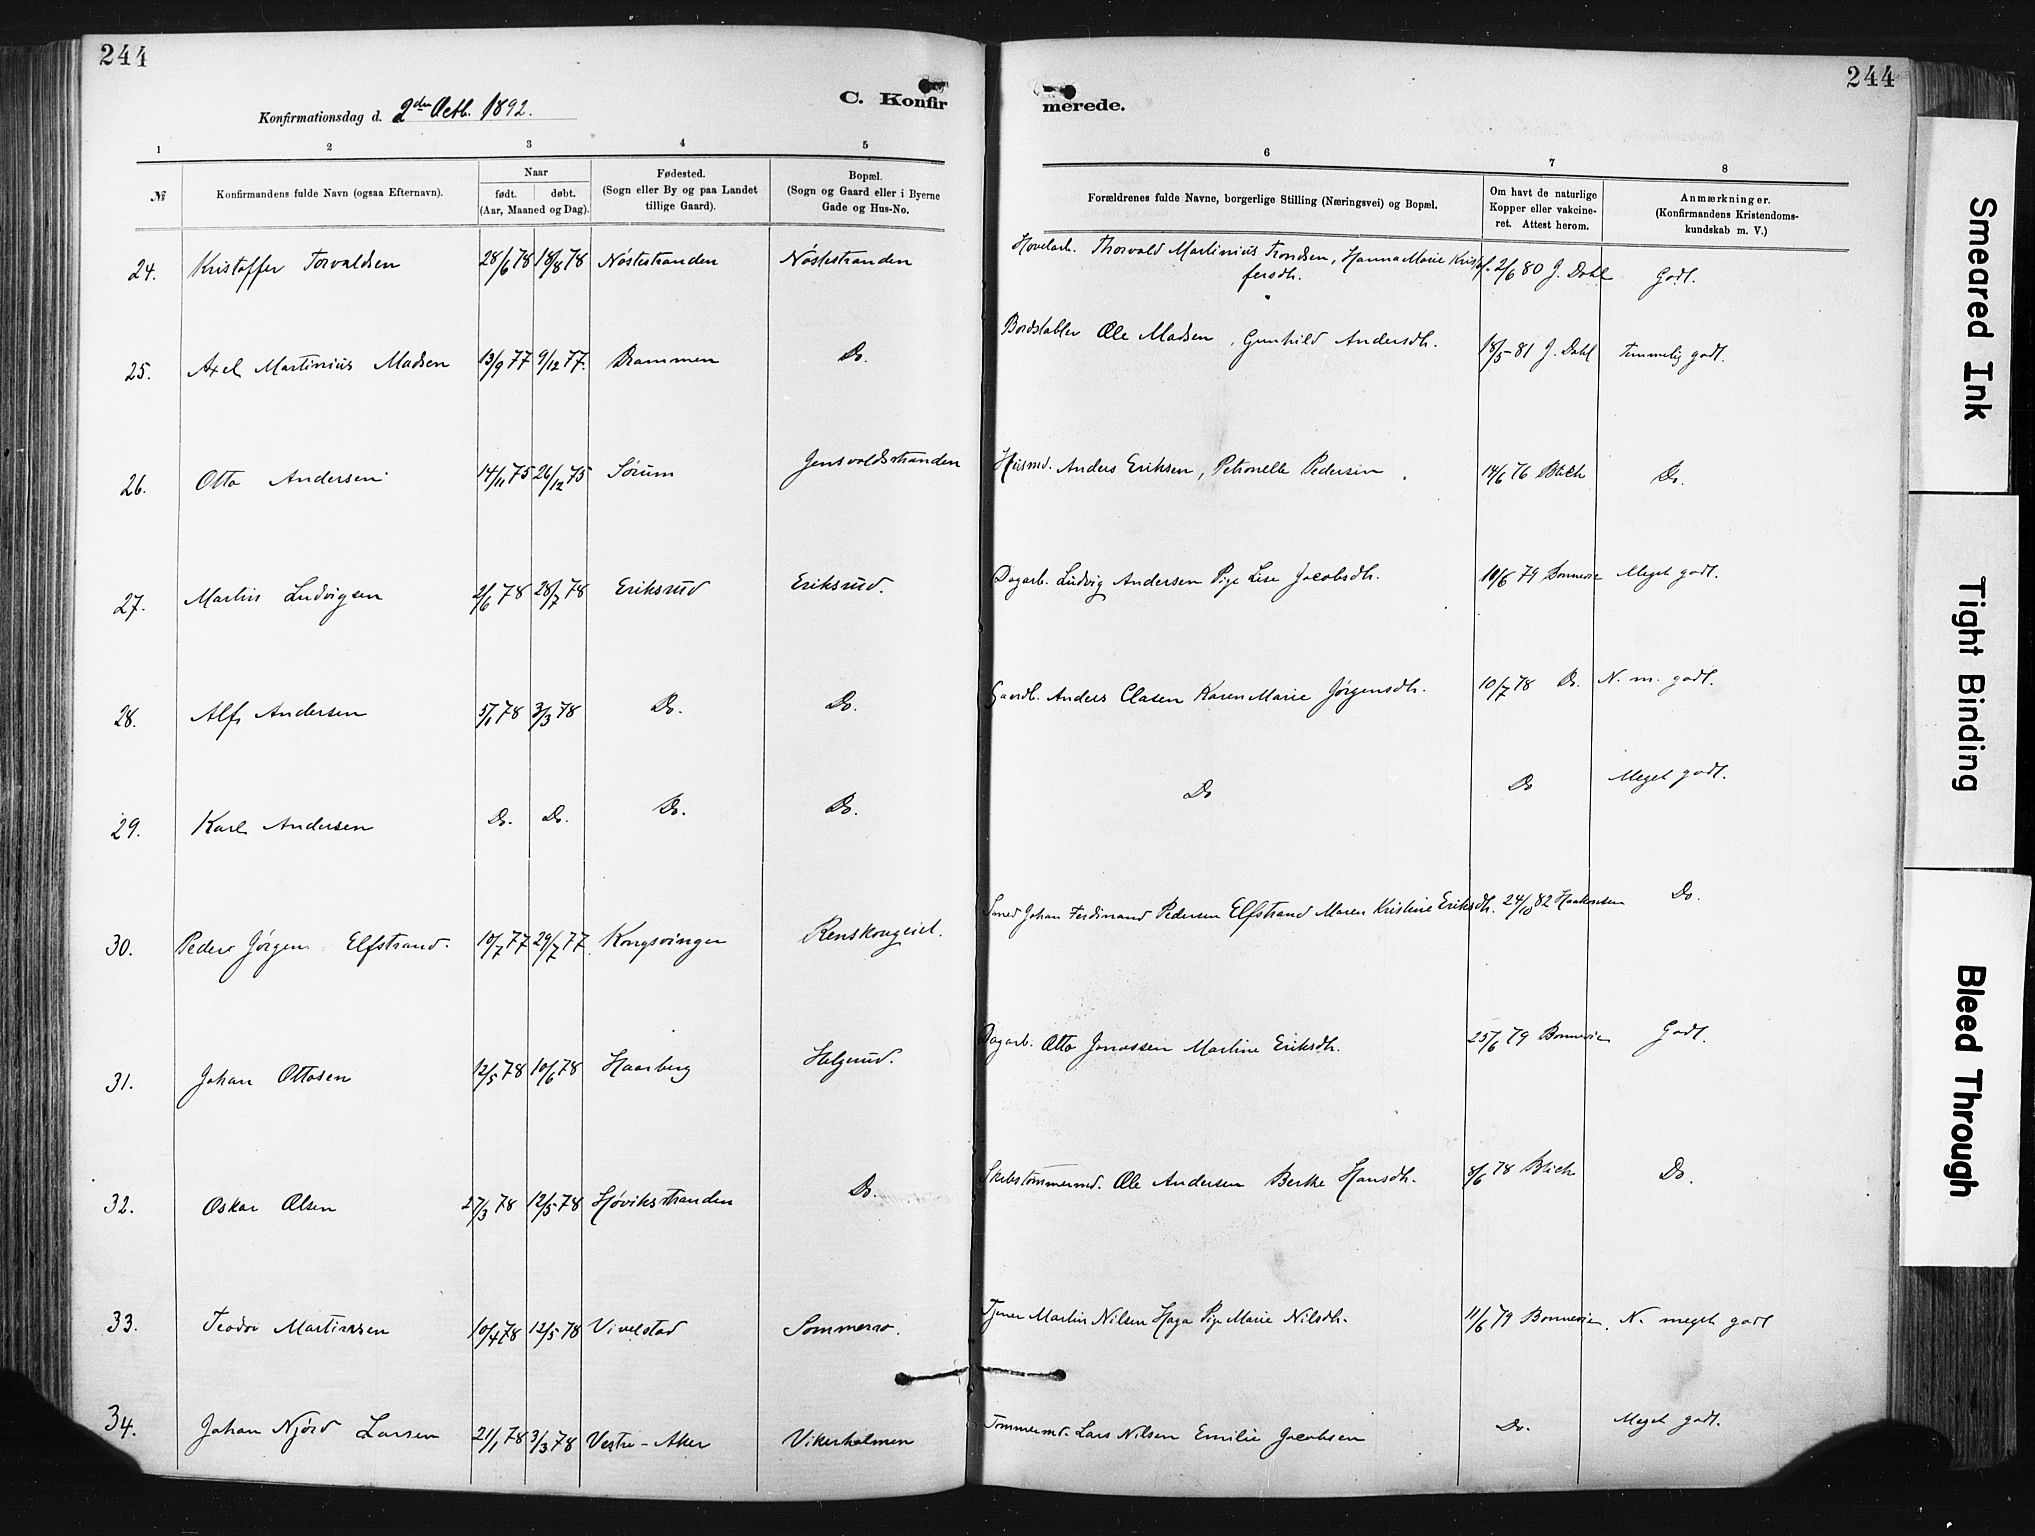 244
244
Konfirmationsdag d. 2den Octb. 1892.
C. Konfir
merede.
1 2 3 4 5 6 7 8
№ Konfirmandens fulde Navn (ogsaa Efternavn).
Naar
født. døbt.
(Aar, Maaned og Dag).
Fødested.
(Sogn eller By og paa Landet
tillige Gaard).
Bopæl.
(Sogn og Gaard eller i Byerne
Gade og Hus-No.
Forældrenes fulde Navne, borgerlige Stilling (Næringsvei) og Bopæl.
Om havt de naturlige
Kopper eller vakcine-
ret. Attest herom.
Anmærkninger.
(Konfirmandens Kristendoms-
kundskab m. V.)
24. Kristoffer Torvaldsen 28/6 78 18/8 78 Nøstestranden Nøstestranden Høvelarb. Thorvald Martinius Trondsen, Hanna Marie Kristof- 2/6 80 J. Dahl Godt.
fersdh.
25. Axel Martinius Madsen 13/9 77 9/12 77. Drammen Do. Bordstabler Ole Madsen, Gunhild Andersdh. 18/5 - 81 J. Dahl Temmelig godt.
26. Otto Andersen 14/11 75 26/12 75 Sørum Jensvoldsstranden Husmd. Anders Eriksen, Petronelle Pedersen 14/6 76 Blich Do.
27. Martin Ludvigsen 2/6 78 28/7 78 Eriksrud Eriksrud. Dagarb. Ludvig Andersen Pige Lise Jacobsdh. 10/6 79 Bonnevie Meget godt.
28. Alf Andersen 5/1 78 3/3 78 Do. Do. Gaardb. Anders Clasen Karen Marie Jørgensdh. 10/7 78 Do. N. m. godt.
29. Karl Andersen Do. Do. Do. Do. Do Do Meget godt.
30. Peder Jørgen Elfstrand. 10/7 77 29/7 77. Kongsvinger Renskougeid. Smed Johan Ferdinand Pedersen Elfstrand Maren Kristine Eriksdh. 24/10 82 Haakensen Do.
31. Johan Ottosen 12/5 78 10/6 78 Haarberg Helgerud. Dagarb. Otto Jonassen Martine Eriksdh. 25/6 79 Bonnevie Godt.
32. Oskar Olsen 27/3 78 12/5 78 Høviksstranden Do. Skibstømmermd. Ole Andersen Berthe Hansdh. 8/6 78 Blich Do.
33. Teodor Martinsen 10/4 78 12/5 78 Vivelstad Sommerro. Tjener Martin Nilsen Haga Pige Marie Nilsdh. 11/6 79 Bonnevie. N. meget godt
34. Johan Njørd Larsen 21/1 78 3/3 78 Vestre-Aker Vikerholmen Tømmermd. Lars Nilsen Emilie Jacobsen Do. Meget godt.
Smeared Ink
Tight Binding
Bleed Through